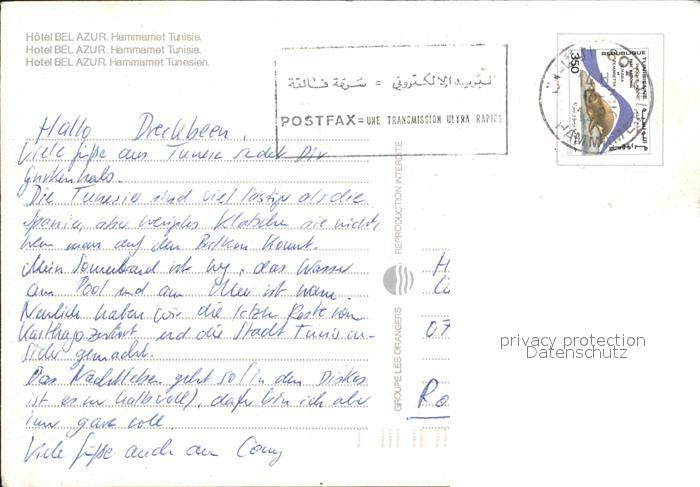 Hôtel BEL AZUR. Hammamet Tunisie.
Hotel BEL AZUR. Hammamet Tunisia.
Hotel BEL AZUR. Hammamet Tunesien.
البريد الإلكتروني = سرعة فائقة
POSTFAX = UNE TRANSMISSION ULTRA RAPIDE
350
REPUBLIQUE TUNISIENNE
Hallo Dreckbeen,
Viele Füße aus Tunesie sendet Dir
Gurkenhals.
Die Tunesier sind viel lästiger als die
Spanier, aber wenigstes klatschen sie nicht
wenn man auf den Balkon kommt.
Mein Sonnenbrand ist weg, das Wasser
am Pool und am Meer ist warm.
Neulich haben wir die letzten Reste von
Karthago zerstört und die Stadt Tunis un-
sicher gemacht.
Das Nachtleben geht so (in den Diskos
ist es nur halbvoll), dafür bin ich aber
immer ganz voll.
Viele Füße auch an Conny
REPRODUCTION INTERDITE
GROUPE LES ORANGERS
H
07
Ro
privacy protection
Datenschutz